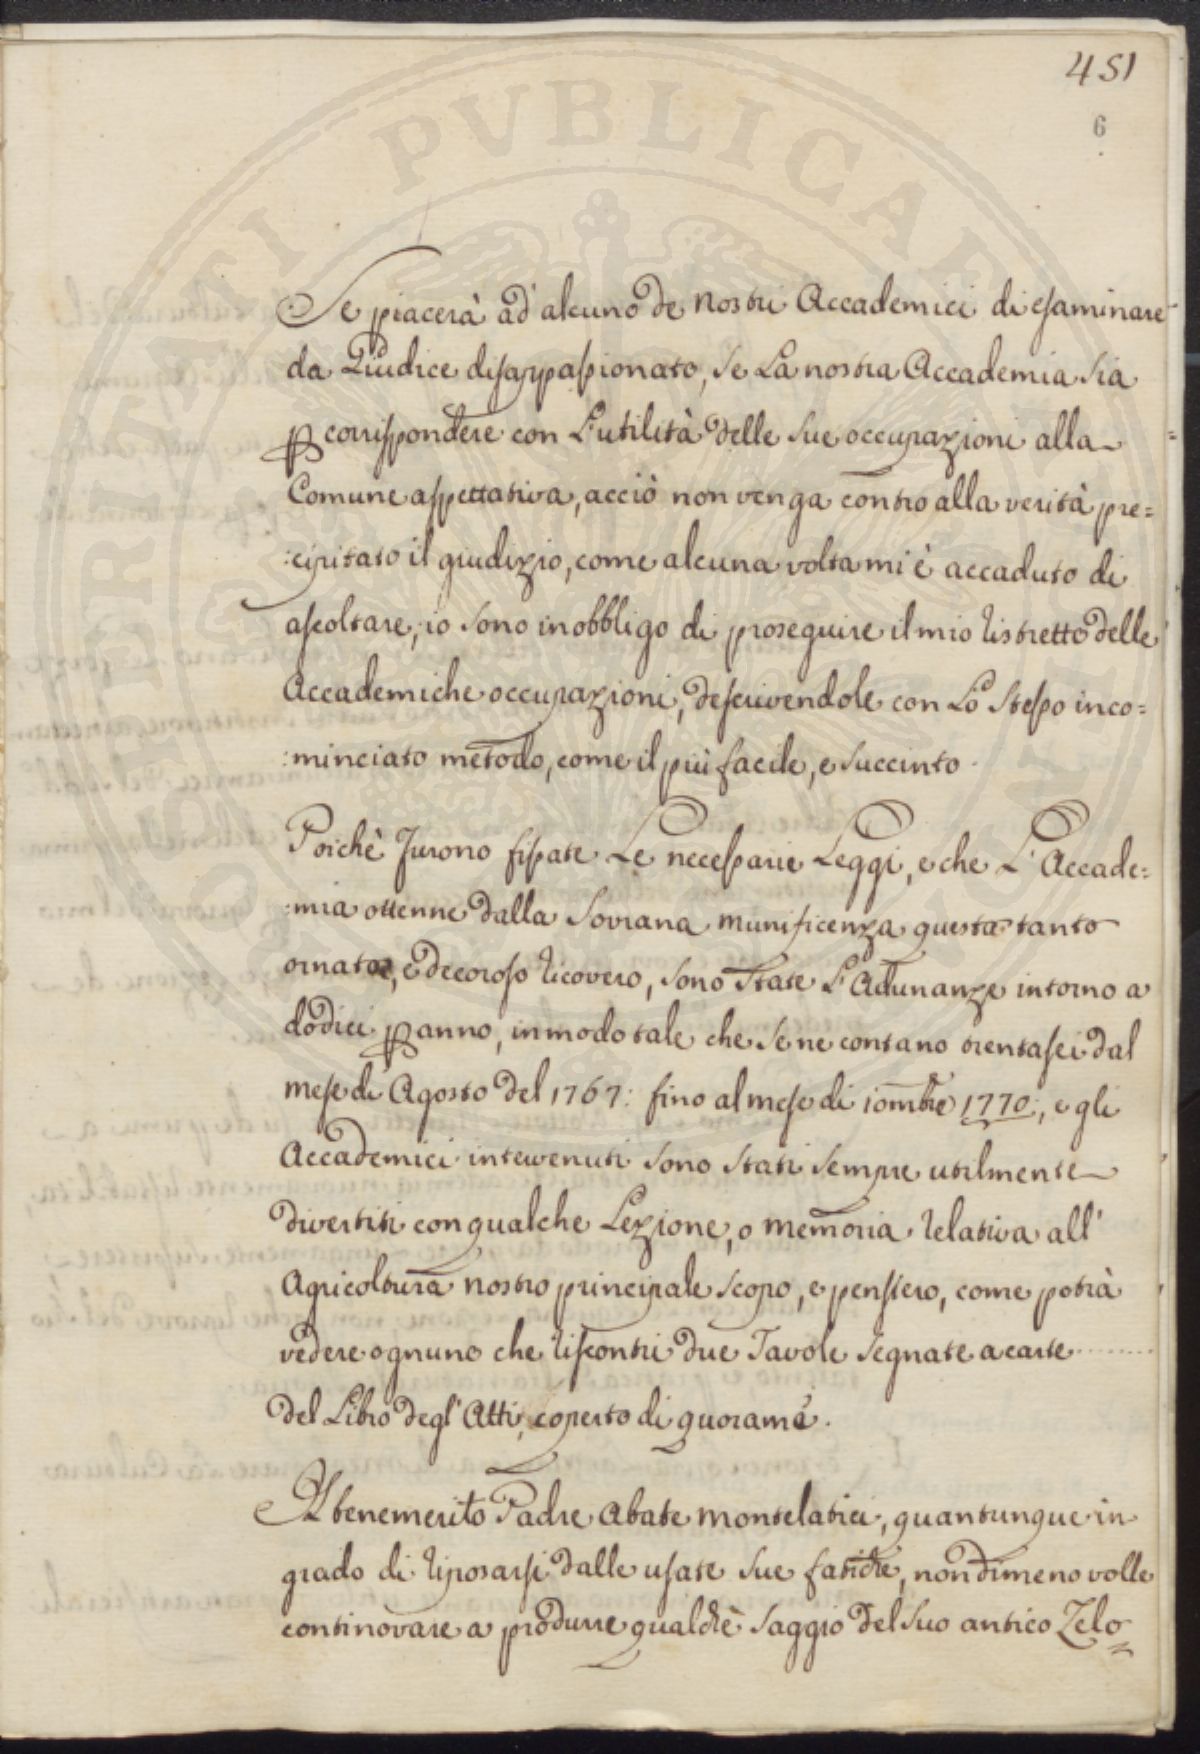 451
6
Se piacerà ad alcuno de nostri Accademici di esaminare
da Giudice disappassionato, se La nostra Accademia sia
p corrispondere con L'utilità delle sue occupazioni alla
Comune aspettativa, acciò non venga contro alla verità pre=
:cipitato il giudizio, come alcuna volta mi è accaduto di
ascoltare, io sono in obbligo di proseguire il mio ristretto delle
Accademiche occupazioni, descrivendole con Lo stesso inco=
:minciato metodo, come il più facile, e succinto.
Poichè furono fissate Le necessarie Leggi, e che L'Accade=
:mia ottenne dalla Sovrana munificenza questo tanto
ornato, e decoroso ricovero, sono state L'Adunanze intorno a
dodici p anno, in modo tale che se ne contano trentasei dal
mese di Agosto del 1767: fino al mese di 10mbre 1770:, e gli
Accademici intervenuti sono stati sempre utilmente
divertiti con qualche Lezione, o memoria relativa all'
Agricoltura nostro principale scopo, e pensiero, come potrà
vedere ognuno che riscontri due Tavole segnate a carte .........
del Libro degl'Atti, coperto di quoramè.
Il benemerito Padre Abate Montelatici, quantunque in
grado di riposarsi dalle usate sue fatiche, nondimeno volle
continovare a produrre qualchè saggio del suo antico Zelo
PROSPERITATI PVBLICAE